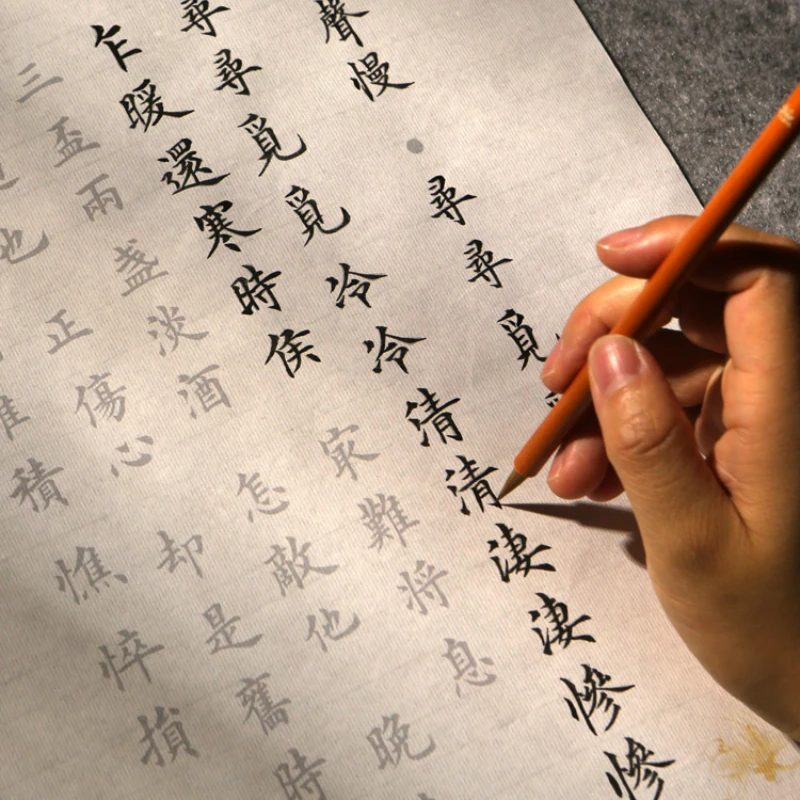 聲慢・尋尋覓
尋尋覓覓冷冷清清淒淒慘慘
乍暖還寒時侯㝡難將息
三盃兩盞淡酒怎敵他晚
也正傷心却是舊時
積憔悴損